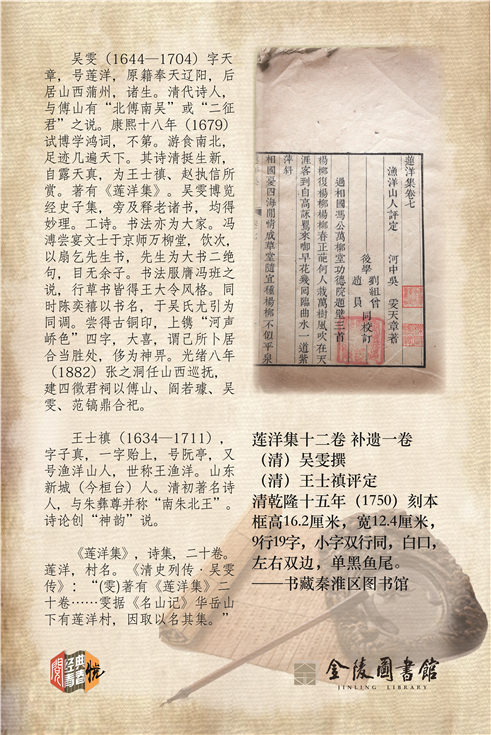 吴雯（1644—1704）字天
章，号莲洋，原籍奉天辽阳，后
居山西蒲州，诸生。清代诗人，
与傅山有“北傅南吴”或“二征
君”之说。康熙十八年（1679）
试博学鸿词，不第。游食南北，
足迹几遍天下。其诗清挺生新，
自露天真，为王士禛、赵执信所
赏。著有《莲洋集》。吴雯博览
经史子集，旁及释老诸书，均得
妙理。工诗。书法亦为大家。冯
溥尝宴文士于京师万柳堂，饮次，
以扇乞先生书，先生为大书二绝
句，目无余子。书法服膺冯班之
说，行草书皆得王大令风格。同
时陈奕禧以书名，于吴氏尤引为
同调。尝得古铜印，上镌“河声
峤色”四字，大喜，谓己所卜居
合当胜处，侈为神畀。光绪八年
（1882）张之洞任山西巡抚，
建四徵君祠以傅山、阎若璩、吴
雯、范镐鼎合祀。
王士禛（1634—1711），
字子真，一字贻上，号阮亭，又
号渔洋山人，世称王渔洋。山东
新城（今桓台）人。清初著名诗
人，与朱彝尊并称“南朱北王”。
诗论创“神韵”说。
《莲洋集》，诗集，二十卷。
莲洋，村名。《清史列传·吴雯
传》：“(雯)著有《莲洋集》二
十卷……雯据《名山记》华岳山
下有莲洋村，因取以名其集。”
蓮洋集卷七
漁洋山人評定　河中吳　雯天章著
後學　劉組曾　趙　員　同校訂
過相國馮公萬柳堂功德院題壁三首
楊柳復楊柳楊柳春正菲何人栽萬樹風吹在天
涯客到自高詠鶯來啣早花幾回臨曲水一道紫
萍斜
相國憂四海閒情成草堂隨宜種楊柳不似平泉
莲洋集十二卷 补遗一卷
（清）吴雯撰
（清）王士禛评定
清乾隆十五年（1750）刻本
框高16.2厘米，宽12.4厘米，
9行19字，小字双行同，白口，
左右双边，单黑鱼尾。
——书藏秦淮区图书馆
阅经典青春悦
金陵圖書館
JINLING LIBRARY